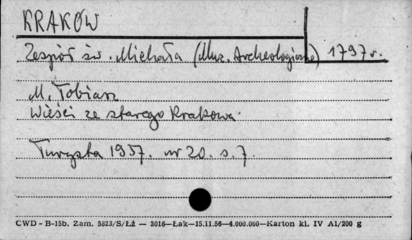 KRAKÓW
Zespół św. Michała (Muz. Archeologiczne) 1797 r.
M. Tobiasz
Wieści ze starego Krakowa.
Turysta 1957. nr 20. s. 7.
CWD - B-15b. Zam. 5823/S/Łź — 2016—Łak—15.11.56—4.000.000—Karton kl. IV A1/200 g